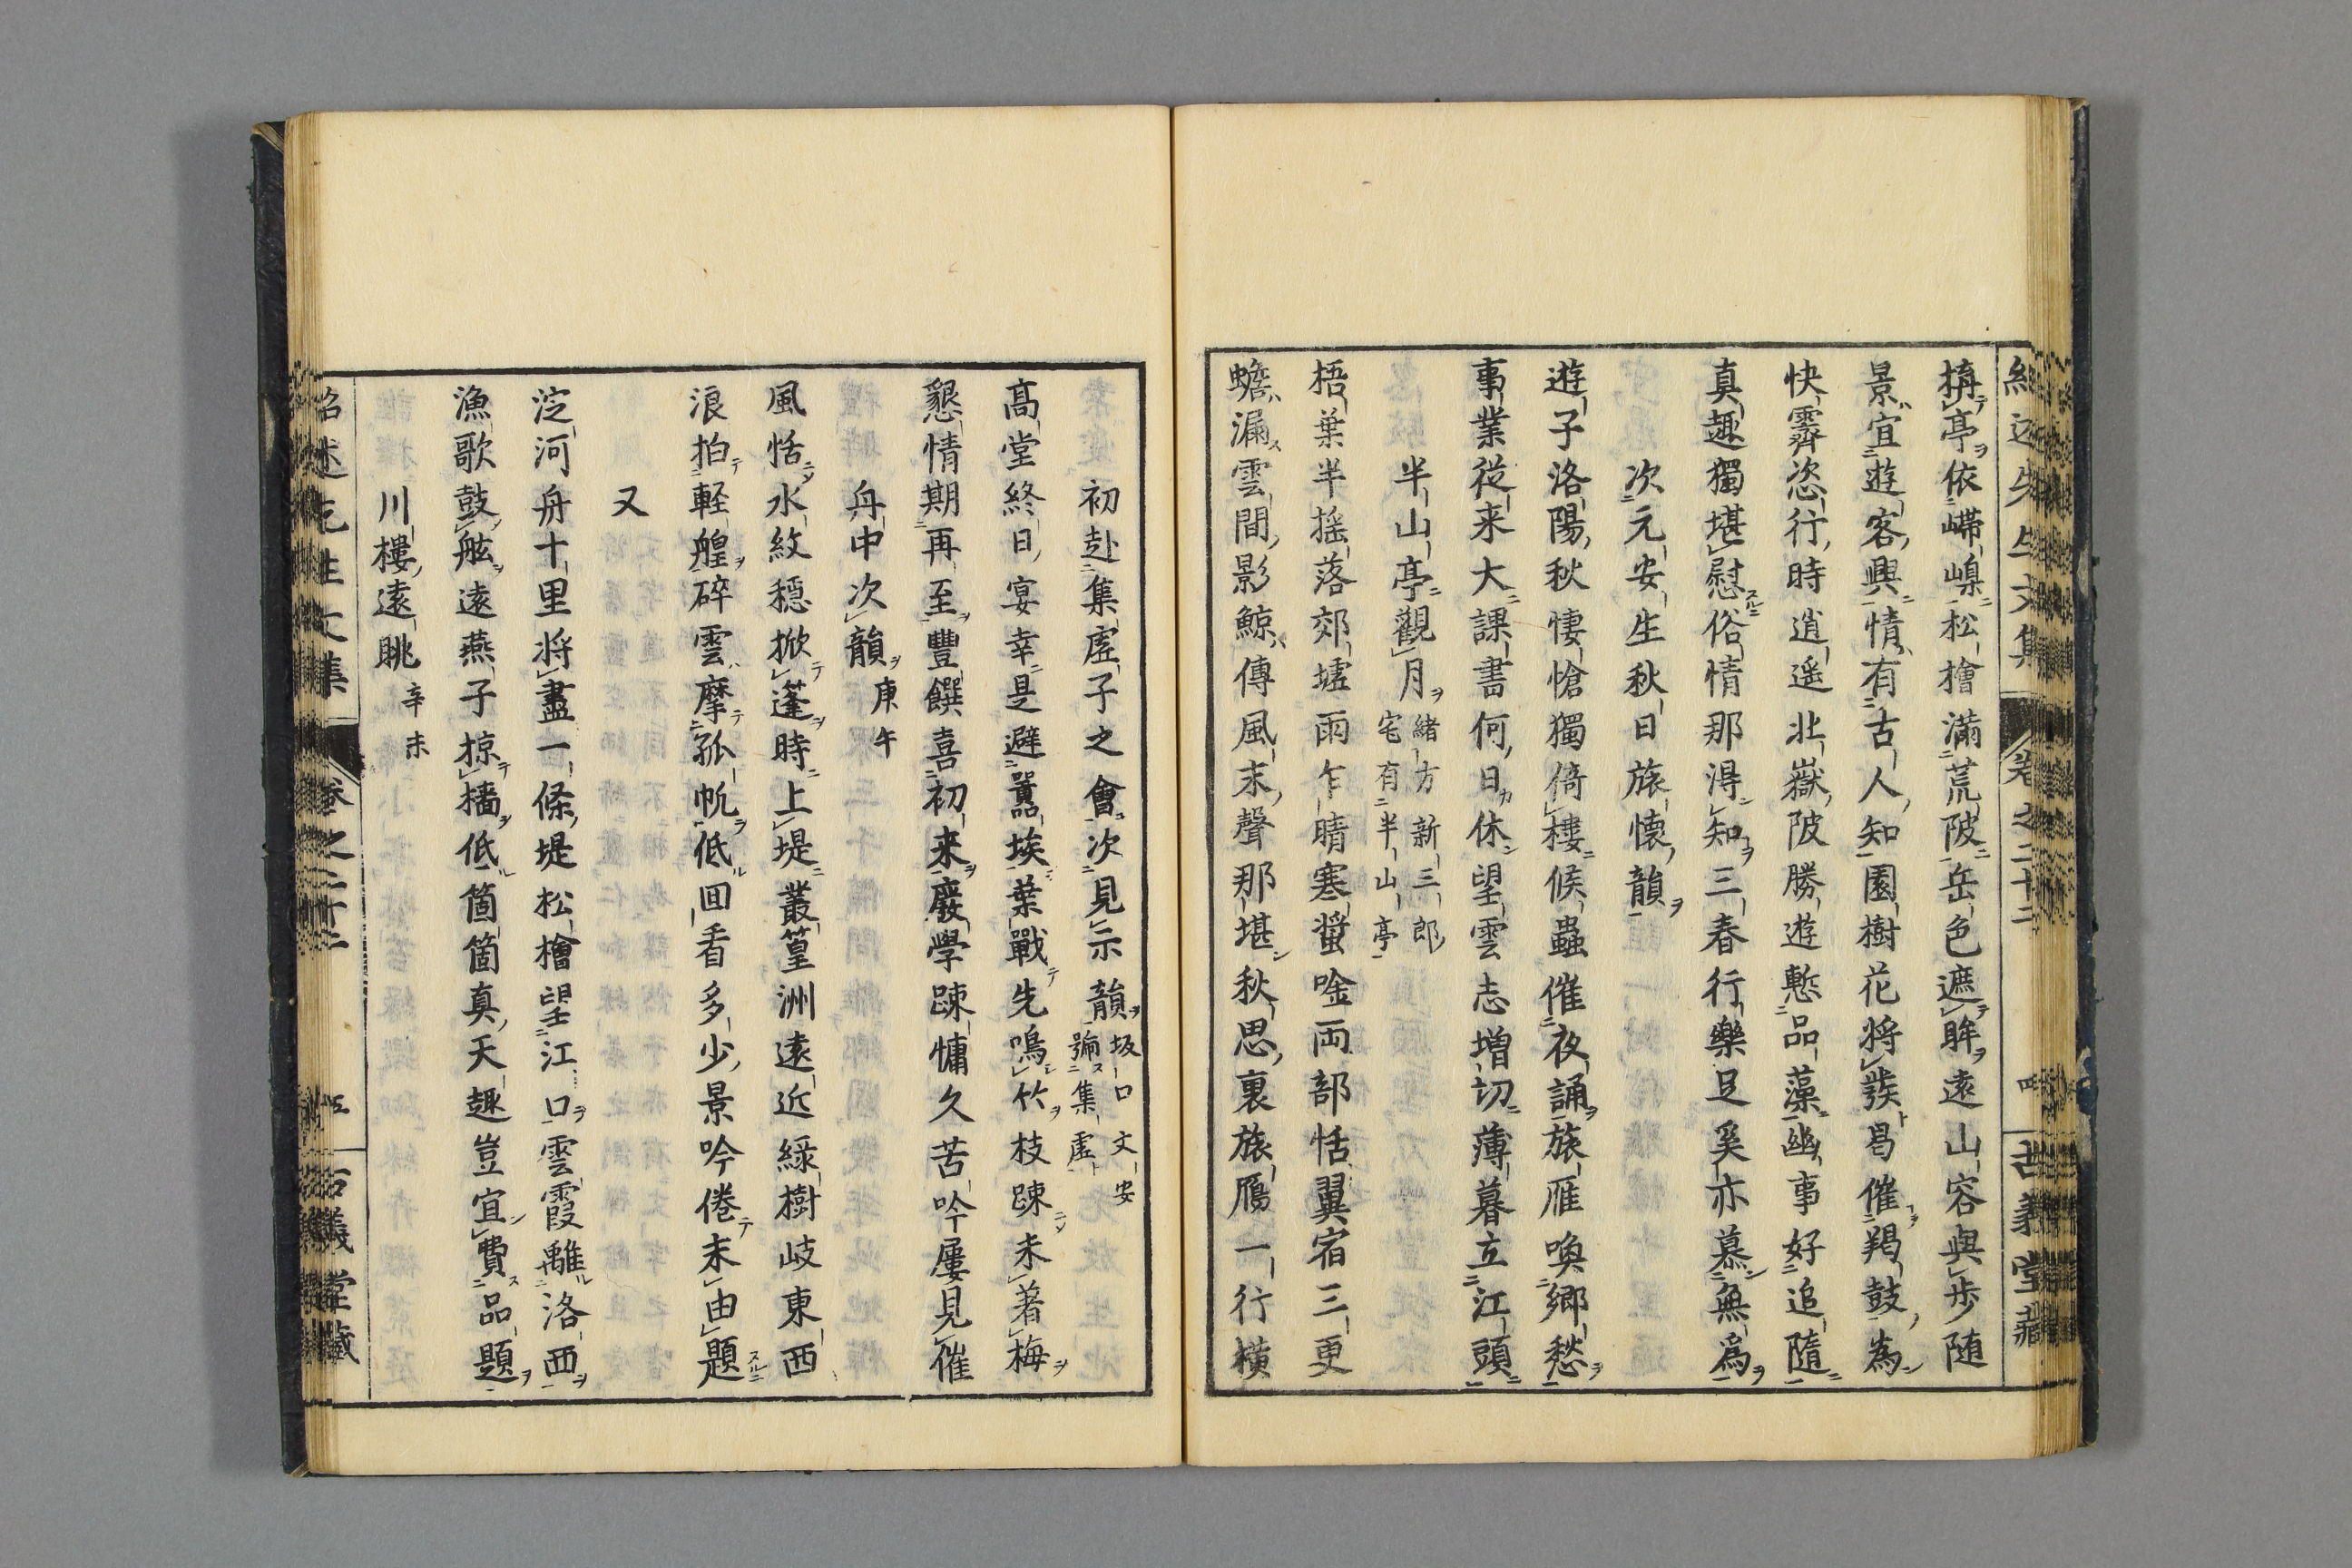 搆亭依嵽嵲松檜滿荒陂岳色遮眸遠山容與步随
景宜遊客興情有古人知園樹花將發曷催羯鼓為
快霽恣行時逍遥北嶽陂勝遊慙品藻幽事好追隨
真趣獨堪慰俗情那得知三春行樂足奚亦慕無為
次元安生秋日旅懷韻
遊子洛陽秋悽愴獨倚樓候蟲催夜誦旅雁喚郷愁
事業從来大課書何日休望雲志増切薄暮立江頭
半山亭觀月
緒方新三郎
宅有半山亭
梧葉半揺落郊墟雨乍晴寒螿唫両部恬翼宿三更
蟾漏雲間影鯨傳風末聲那堪秋思裏旅鴈一行横
卷之二十二
四
古義堂藏
初赴集虚子之會次見示韻
坂口文安
號集虚
髙堂終日宴幸是避囂埃葉戰先鳴竹枝踈未著梅
懇情期再至豐饌喜初来廢學踈慵久苦吟屢見催
舟中次韻
庚午
風恬水紋穏掀蓬時上堤叢篁洲遠近緑樹岐東西
浪拍軽艎碎雲摩孤帆低回看多少景吟倦未由題
又
泛河舟十里將盡一條堤松檜望江口雲霞離洛西
漁歌鼓舷遠燕子掠檣低箇箇真天趣豈宜費品題
川樓遠眺
辛未
紹述先生文集
卷之二十二
五
古義堂藏